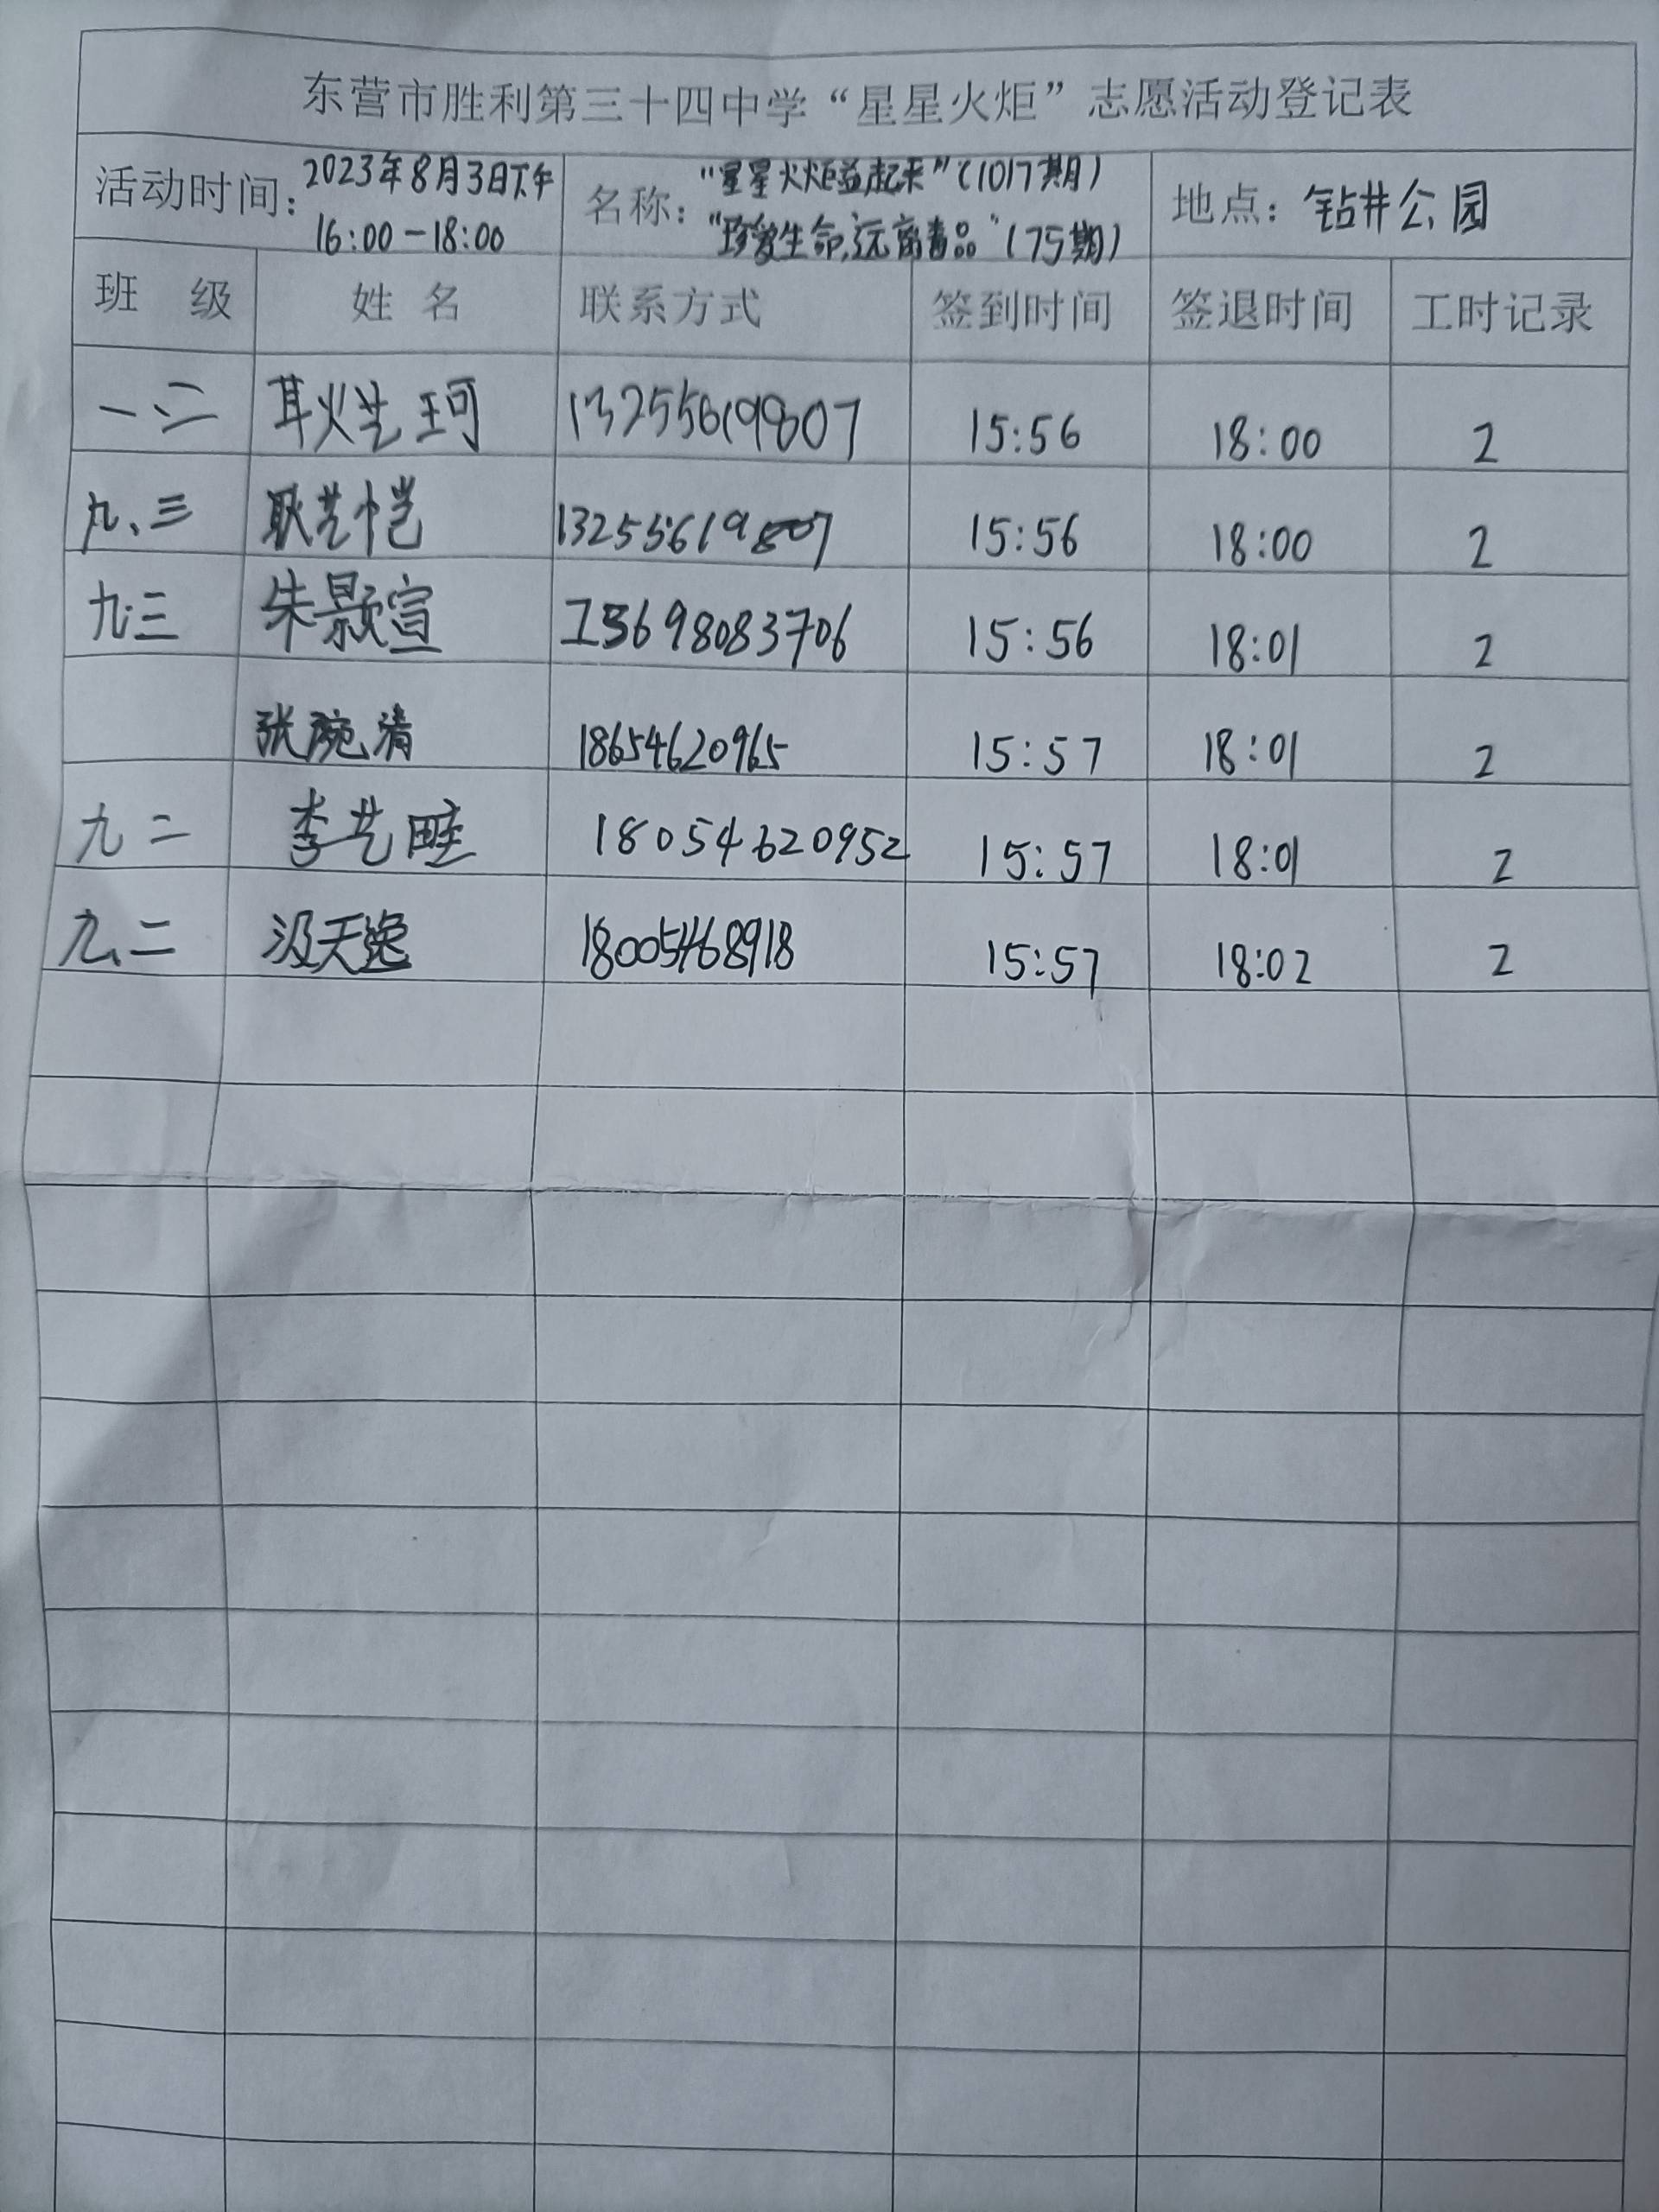 东营市胜利第三十四中学“星星火炬”志愿活动登记表
活动时间：2023年8月3日下午 16:00-18:00 名称：“星星火炬益起来”(1017期) “珍爱生命,远离毒品”(75期) 地点：钻井公园
班 级 姓 名 联系方式 签到时间 签退时间 工时记录
一、二 耿艺珂 13255619807 15:56 18:00 2
九、三 耿艺恺 13255619807 15:56 18:00 2
九.三 朱颢宣 13698083706 15:56 18:01 2
张琬清 18654620965 15:57 18:01 2
九 二 李艺畦 18054620952 15:57 18:01 2
九、二 汲天逸 18005468918 15:57 18:02 2